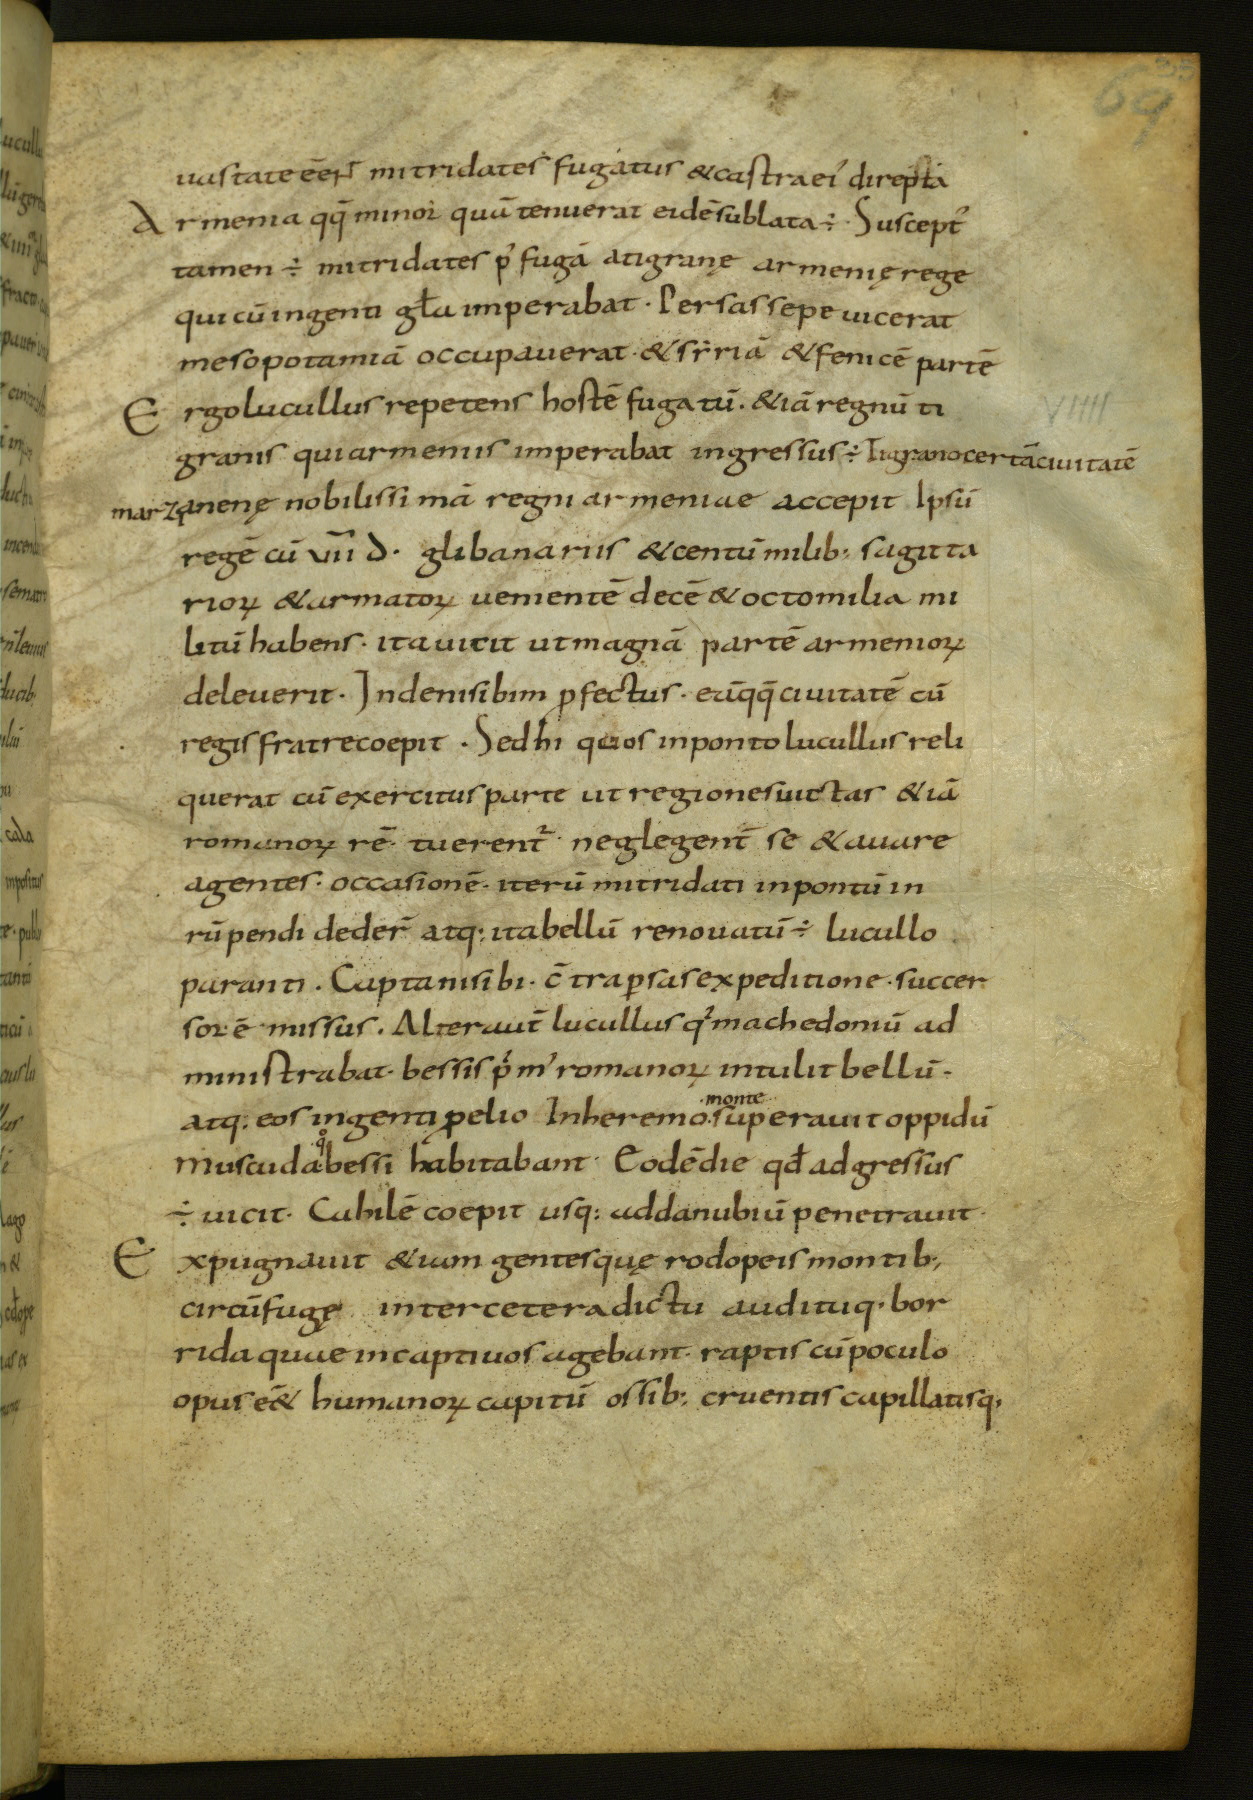 69
33
uastate eēt mitridates fugatus &castraei' direpta
Armenia qq̄ minor quā tenuerat eidē sublata÷. Suscept'
tamen ÷ mitridates p' fugā atigranę armenię rege
qui cū ingenti gła imperabat. Persas sepe uicerat
mesopotamiā occupauerat. & sẏriā & fenicē partē
Ergo lucullus repetens hostē fugatū. & iā regnū ti
VIIII
granis qui armeniis imperabat ingressus÷. Tigranocertā ciuitatē
marzanenę nobilissimā regni armeniae accepit Ipsū
regē cū VII D. glibanariis & centū milib; sagitta
rioꝝ & armatoꝝ uenientē decē & octo milia mi
litū habens. ita uicit ut magnā partē armenioꝝ
deleuerit. Inde nisibim ꝑfectus. eūqq̄ ciuitatē cū
regis fratre coepit. Sed hi quos in ponto lucullus reli
querat cū exercitus parte ut regiones uictas & iā
romanoꝝ rē. tuerent̄ neglegent̄ se & auare
agentes. occasionē. iterū mitridati in pontū in
rūpendi deder̄ atq; ita bellū renouatū ÷ lucullo
paranti. Capta nisibi. c̄tra ꝑsas expeditione. succes
sor ē missus. Alter aut̄ lucullus q' machedoniū ad
ministrabat. bessis p' m' romanoꝝ intulit bellū.
atq; eos ingenti proelio In heremo. superauit oppidū
monte
muscuda bessi habitabant. Eodē die qđ adgressus
q°
÷ uicit. Cabilē coepit usq; addanubiū penetrauit.
Expugnauit & iam gentes quę rodopeis montib;
circūfugę inter cetera dictu audituq; hor
rida quae in captiuos agebant. raptis cū poculo
opus eē& humanoꝝ capitū ossib; cruentis capillatisq;